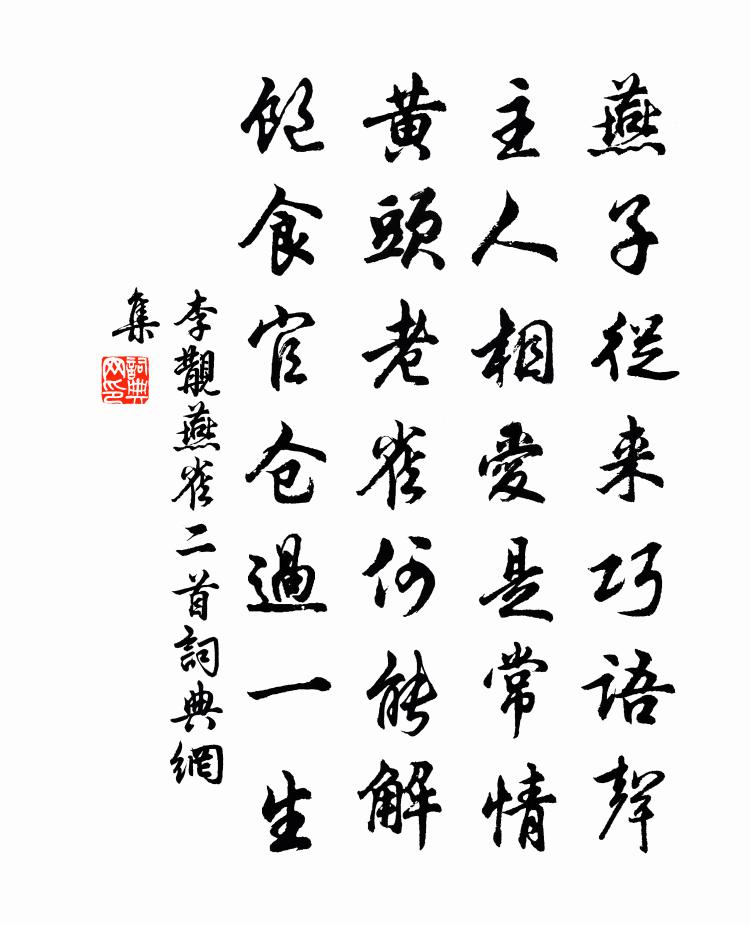 燕子從来巧語聲
主人相愛是常情
黃頭老雀何能解
飽食官仓過一生
李覯燕雀二首詞典網
集
詞典
网印